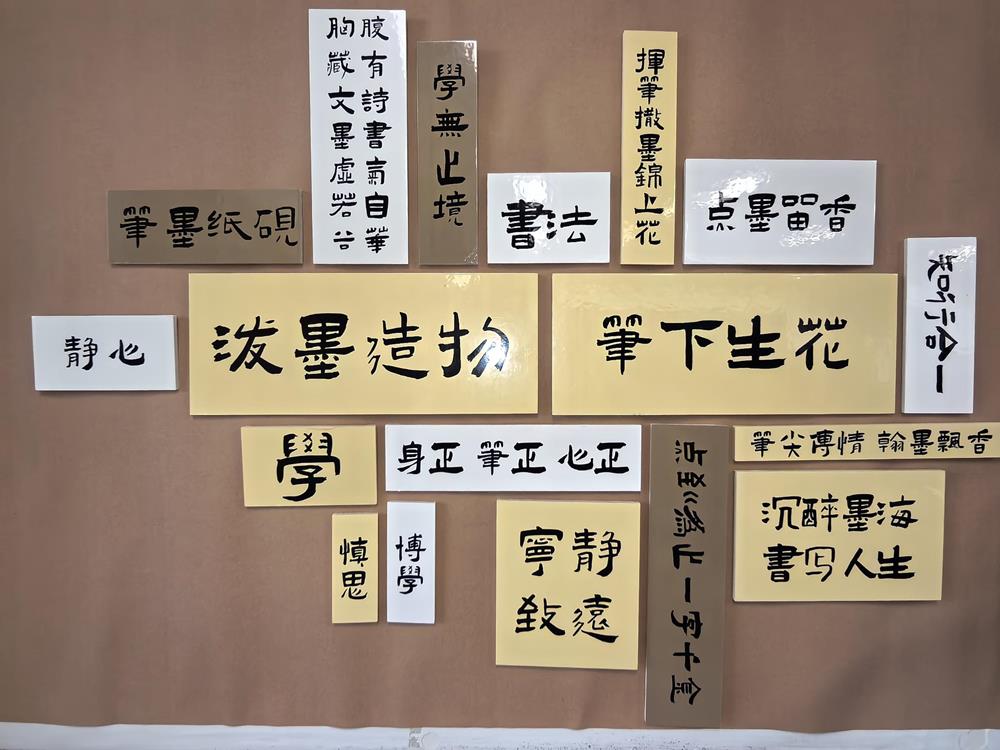 腹有詩書氣自華
胸藏文墨虛若谷
學無止境
揮筆撒墨錦上花
筆墨纸硯
書法
点墨留香
知行合一
静心
泼墨造物
筆下生花
學
身正 筆正 心正
点到為止一字千金
筆尖傳情 翰墨飄香
慎思
博學
寧静
致遠
沉醉墨海
書写人生